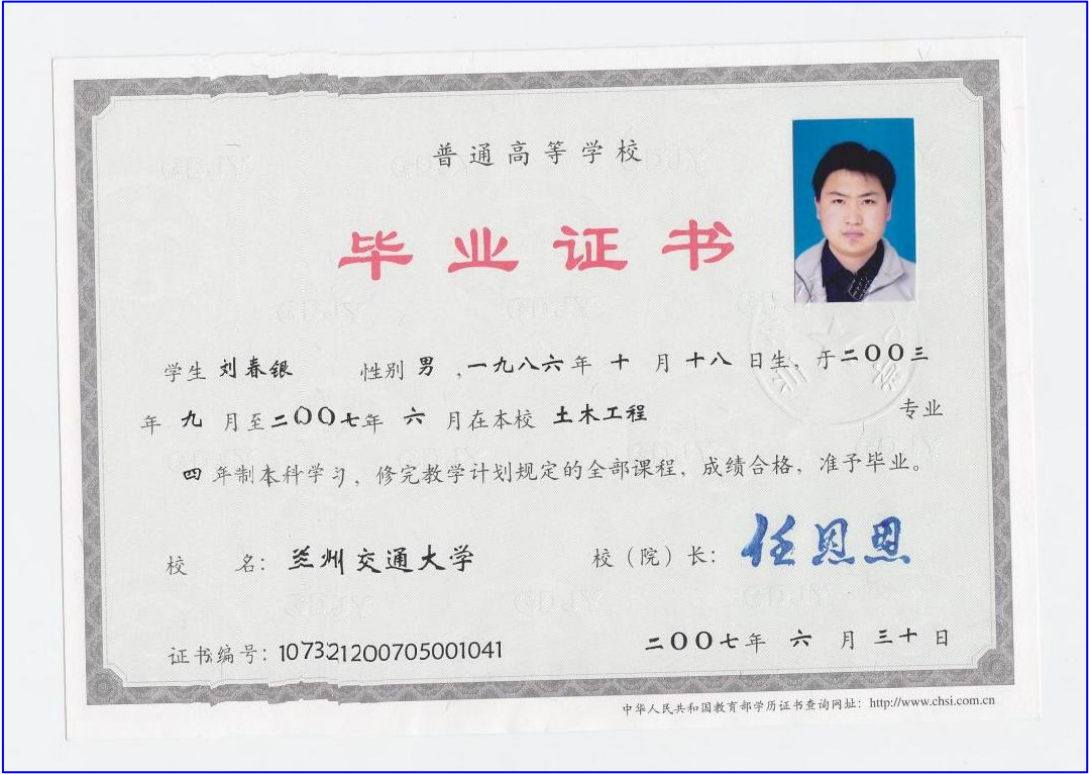 普通高等学校
毕业证书
学生 刘春银 性别 男 ,一九八六年 十 月 十八 日生, 于二〇〇三
年 九 月至二〇〇七年 六 月在本校 土木工程 专业
四 年制本科学习, 修完教学计划规定的全部课程, 成绩合格, 准予毕业。
校 名: 兰州交通大学 校（院）长: 任恩恩
证书编号: 107321200705001041 二〇〇七年 六 月 三十 日
中华人民共和国教育部学历证书查询网址: http://www.chsi.com.cn